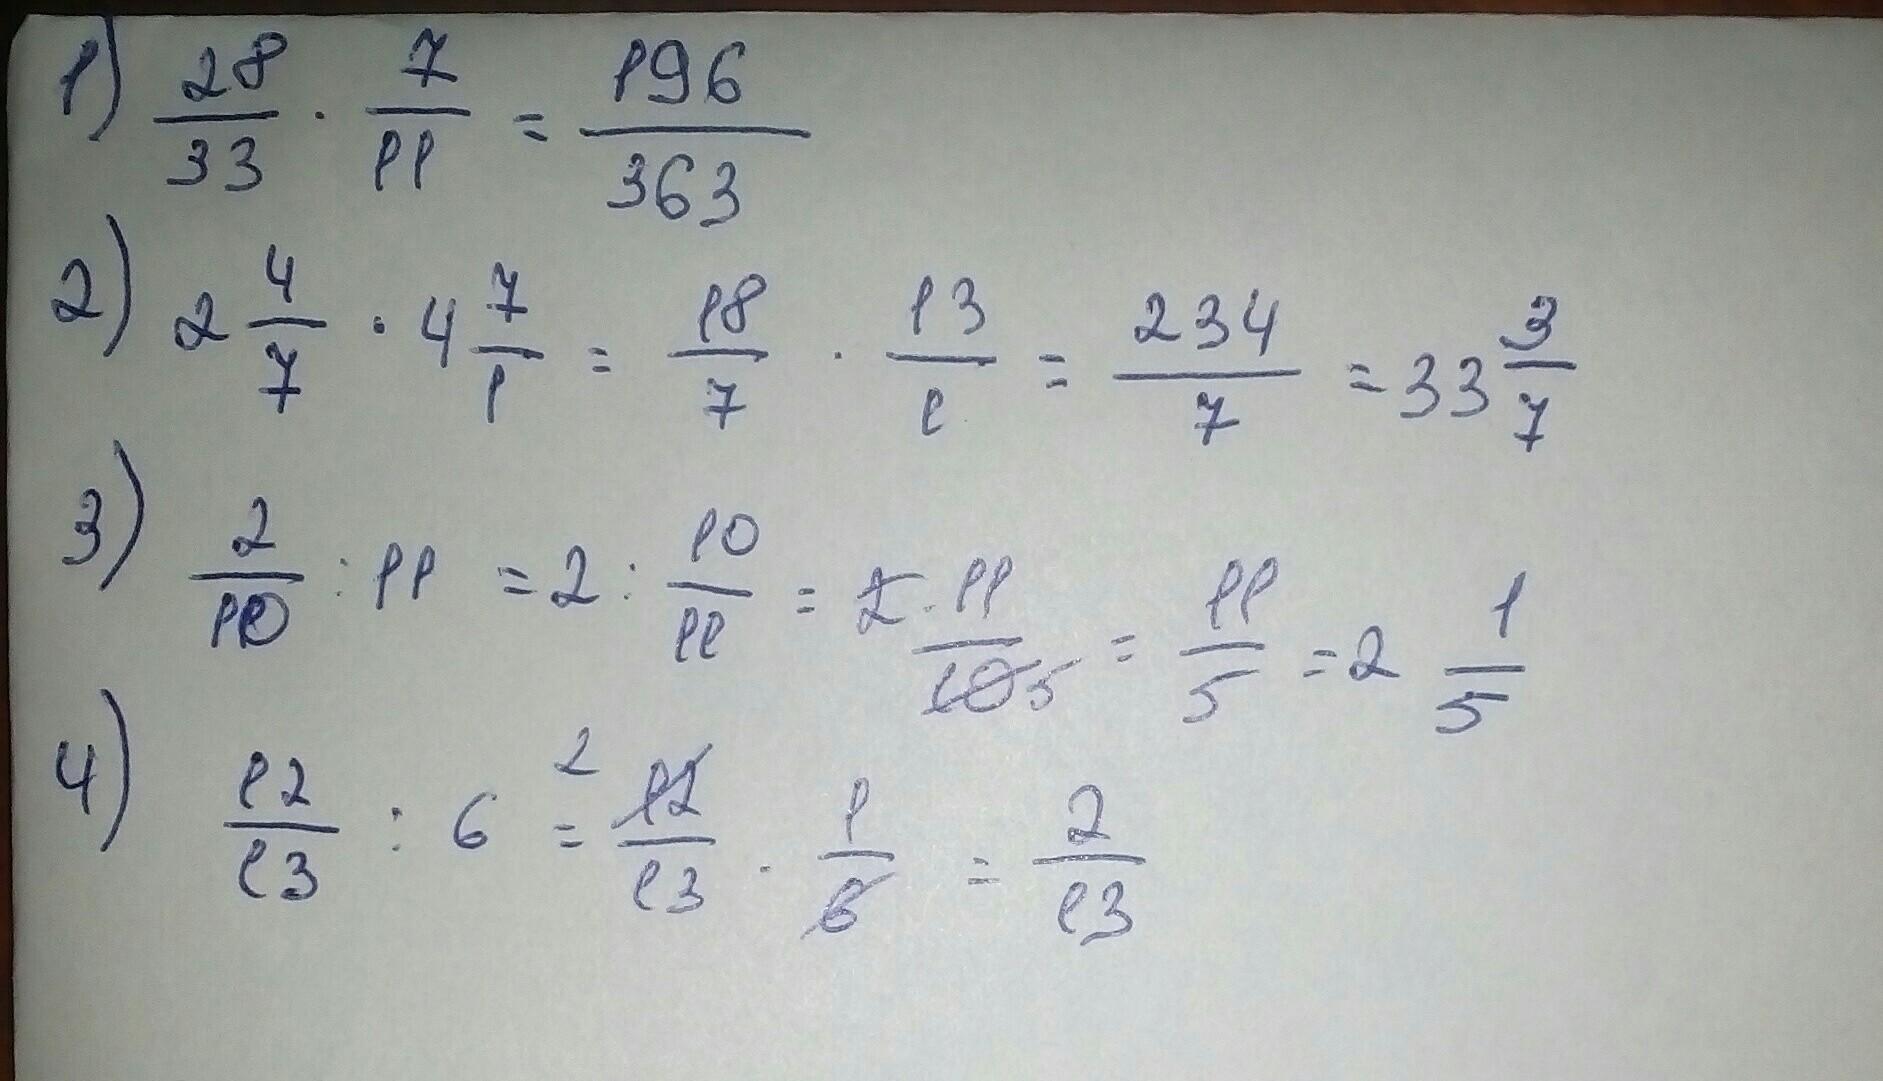 1) 28/33 · 7/11 = 196/363
2) 2 4/7 · 4 7/1 = 18/7 · 13/1 = 234/7 = 33 3/7
3) 2/10 : 11 = 2 : 10/11 = 2 · 11/10 5 = 11/5 = 2 1/5
4) 12/13 : 6 = 2 12/13 · 1/6 = 2/13